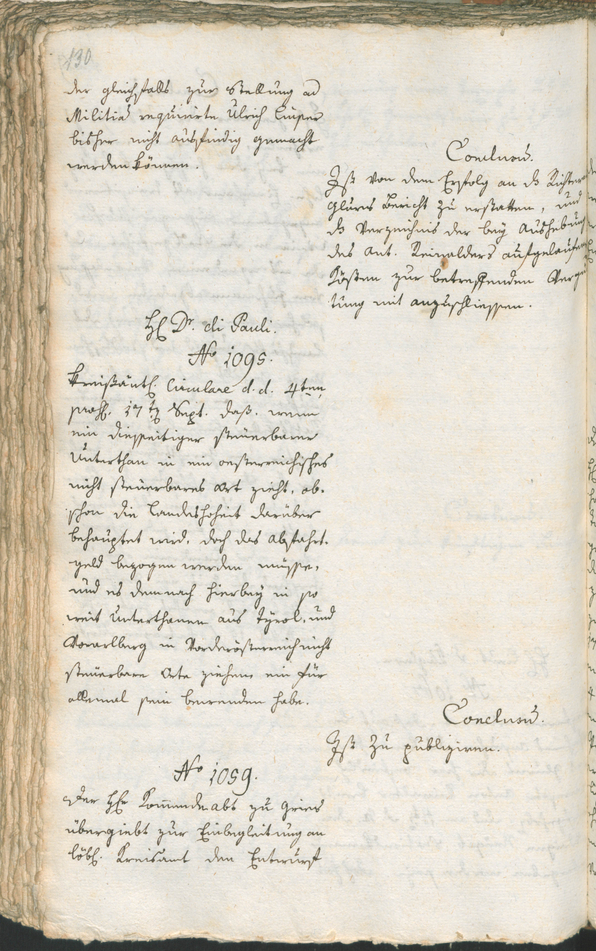 130
der gleichfalls zur Stellung ad
Militiam requirirte Ulrich
bisher nicht ausfindig gemacht
werden können.
Conclusum.
Ist von dem Erfolg an das Richteramt
Glurns Bericht zu erstatten, und
das Verzeichnis der bey Aushebung
des Ant. Reinalders aufgelaufenen
Kösten zur betreffenden Vergü
tung mit anzuschliessen.
H. Dr. di Pauli.
No 1095.
Kreisämtl. Circulare d.d. 4ten
präs. 17ten Sept. daß, wenn
ein diesseitiger steuerbarer
Unterthan in ein oesterreichisches
nicht steuerbares Ort zieht, ob-
schon die Landeshoheit darüber
behauptet wird, doch das Abfahrt-
geld bezogen werden müsse,
und es demnach hierbey in so
weit Unterthanen aus Tyrol, und
Vorarlberg in Vorderösterreich nicht
steuerbare Orte ziehen ein für
allemal sein bewenden habe.
Conclusum.
Ist zu publiziren.
No 1059.
Der Hr. Kommendeabt zu Gries
übergiebt zur Einbegleitung an
löbl. Kreisamt den Entwurf